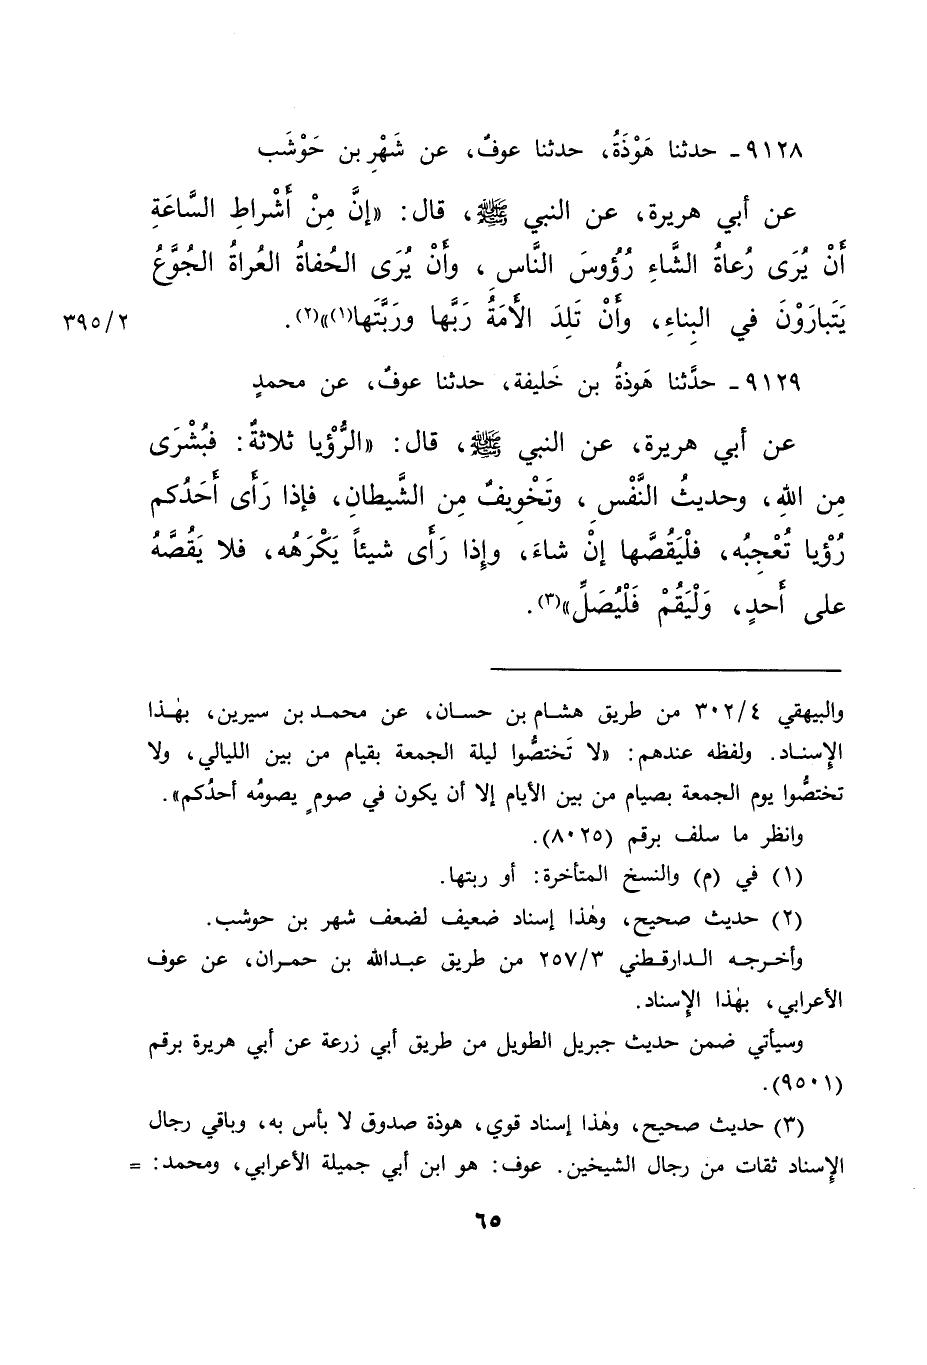 ٩١٢٨ - حدثنا هَوْذَةُ، حدثنا عوفٌ، عن شَهْرِ بن حَوْشَب
عن أبي هريرة، عن النبي ﷺ، قال: «إنَّ مِنْ أَشْراطِ السَّاعَةِ
أَنْ يُرَى رُعاةُ الشَّاءِ رُؤوسَ النَّاسِ، وأَنْ يُرَى الحُفاةُ العُراةُ الجُوَّعُ
يَتَبارَوْنَ في البِناءِ، وأَنْ تَلِدَ الأَمَةُ رَبَّها ورَبَّتَها(١)»(٢). ٣٩٥/٢
٩١٢٩ - حدَّثنا هَوذةُ بن خَليفة، حدثنا عوفٌ، عن محمدٍ
عن أبي هريرة، عن النبي ﷺ، قال: «الرُّؤْيا ثلاثةٌ: فبُشْرَى
مِن اللهِ، وحديثُ النَّفْسِ، وتَخْويفٌ مِن الشَّيطانِ، فإذا رَأَى أَحَدُكم
رُؤْيا تُعْجِبُه، فلْيَقُصَّها إنْ شاءَ، وإِذا رَأَى شيئاً يَكْرَهُه، فلا يَقُصَّهُ
على أَحدٍ، وَلْيَقُمْ فَلْيُصَلِّ»(٣).
والبيهقي ٣٠٢/٤ من طريق هشام بن حسان، عن محمد بن سيرين، بهٰذا
الإسناد. ولفظه عندهم: «لا تَختصُّوا ليلة الجمعة بقيام من بين الليالي، ولا
تختصُّوا يوم الجمعة بصيام من بين الأيام إلا أن يكون في صومٍ يصومُه أحدُكم».
وانظر ما سلف برقم (٨٠٢٥).
(١) في (م) والنسخ المتأخرة: أو ربتها.
(٢) حديث صحيح، وهٰذا إسناد ضعيف لضعف شهر بن حوشب.
وأخرجه الدارقطني ٢٥٧/٣ من طريق عبدالله بن حمران، عن عوف
الأعرابي، بهٰذا الإسناد.
وسيأتي ضمن حديث جبريل الطويل من طريق أبي زرعة عن أبي هريرة برقم
(٩٥٠١).
(٣) حديث صحيح، وهٰذا إسناد قوي، هوذة صدوق لا بأس به، وباقي رجال
الإسناد ثقات من رجال الشيخين. عوف: هو ابن أبي جميلة الأعرابي، ومحمد: =
٦٥